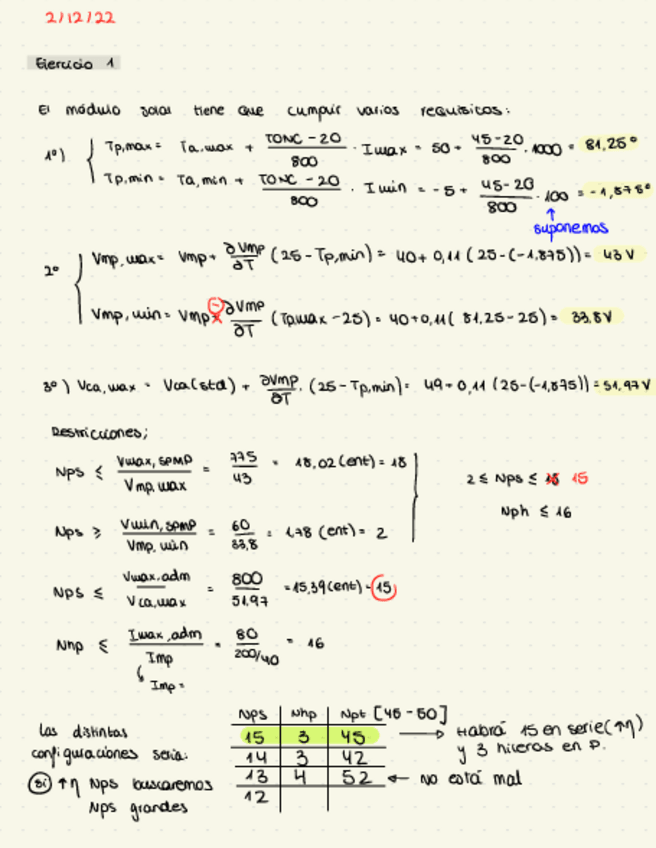 2/12/22
Ejercicio 1
El módulo solar tiene que cumplir varios requisitos:
1º) Tp,max = Ta,max + TONC - 20 / 800 · Imax = 50 + 45-20 / 800 · 1000 = 81,25º
Tp,min = Ta,min + TONC - 20 / 800 · Imin = -5 + 45-20 / 800 · 100 = -1,875º
↑
suponemos
2º Vmp,max = Vmp + ∂Vmp / ∂T (25 - Tp,min) = 40 + 0,11 (25 - (-1,875)) = 43 V
Vmp,min = Vmp - ∂Vmp / ∂T (Tp,max - 25) = 40 + 0,11 (81,25 - 25) = 33,8 V
3º) Vca,max = Vca(std) + ∂Vmp / ∂T · (25 - Tp,min) = 49 + 0,11 (25 - (-1,875)) = 51,97 V
Restricciones;
Nps ≤ Vmax,SPMP / Vmp,max = 775 / 43 = 18,02 (ent) = 18
2 ≤ Nps ≤ 18 15
Nph ≤ 16
Nps ≥ Vmin,SPMP / Vmp,min = 60 / 33,8 = 1,78 (ent) = 2
Nps ≤ Vmax,adm / Vca,max = 800 / 51,97 = 15,39 (ent) = 15
Nhp ≤ Imax,adm / Imp = 80 / 200/40 = 16
Imp =
Las distintas configuraciones sería:
Si ↑η Nps buscaremos
Nps grandes
Nps Nhp Npt [45 - 50]
15 3 45 → Habrá 15 en serie (↑η)
y 3 hileras en P.
14 3 42
13 4 52 ← No está mal
12